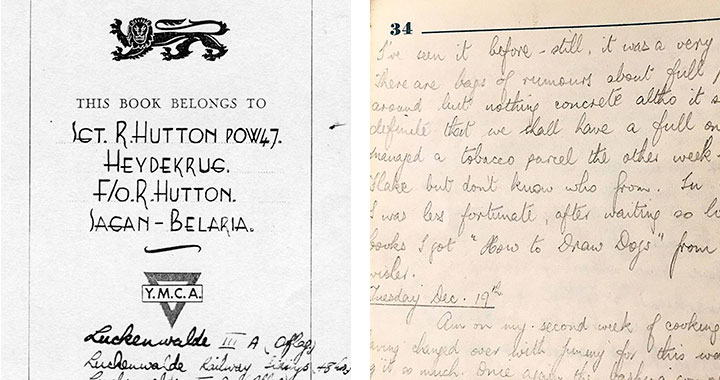 THIS BOOK BELONGS TO
SGT. R. HUTTON POW47.
HEYDEKRUG.
F/O. R. HUTTON.
SAGAN - BELARIA.
Y.M.C.A.
Luckenwalde III A (Oflag)
Luckenwalde Railway
34
I've seen it before - still, it was a very
There are bags of rumours about full
around but nothing concrete altho it
definite that we shall have a full
managed a tobacco parcel the other week
Flake but don't know who from. In
I was less fortunate, after waiting so
books I got "How to Draw Dogs" from
Tuesday Dec. 19th
Am on my second week of cooking
having changed over with for this
it so much. Once again the